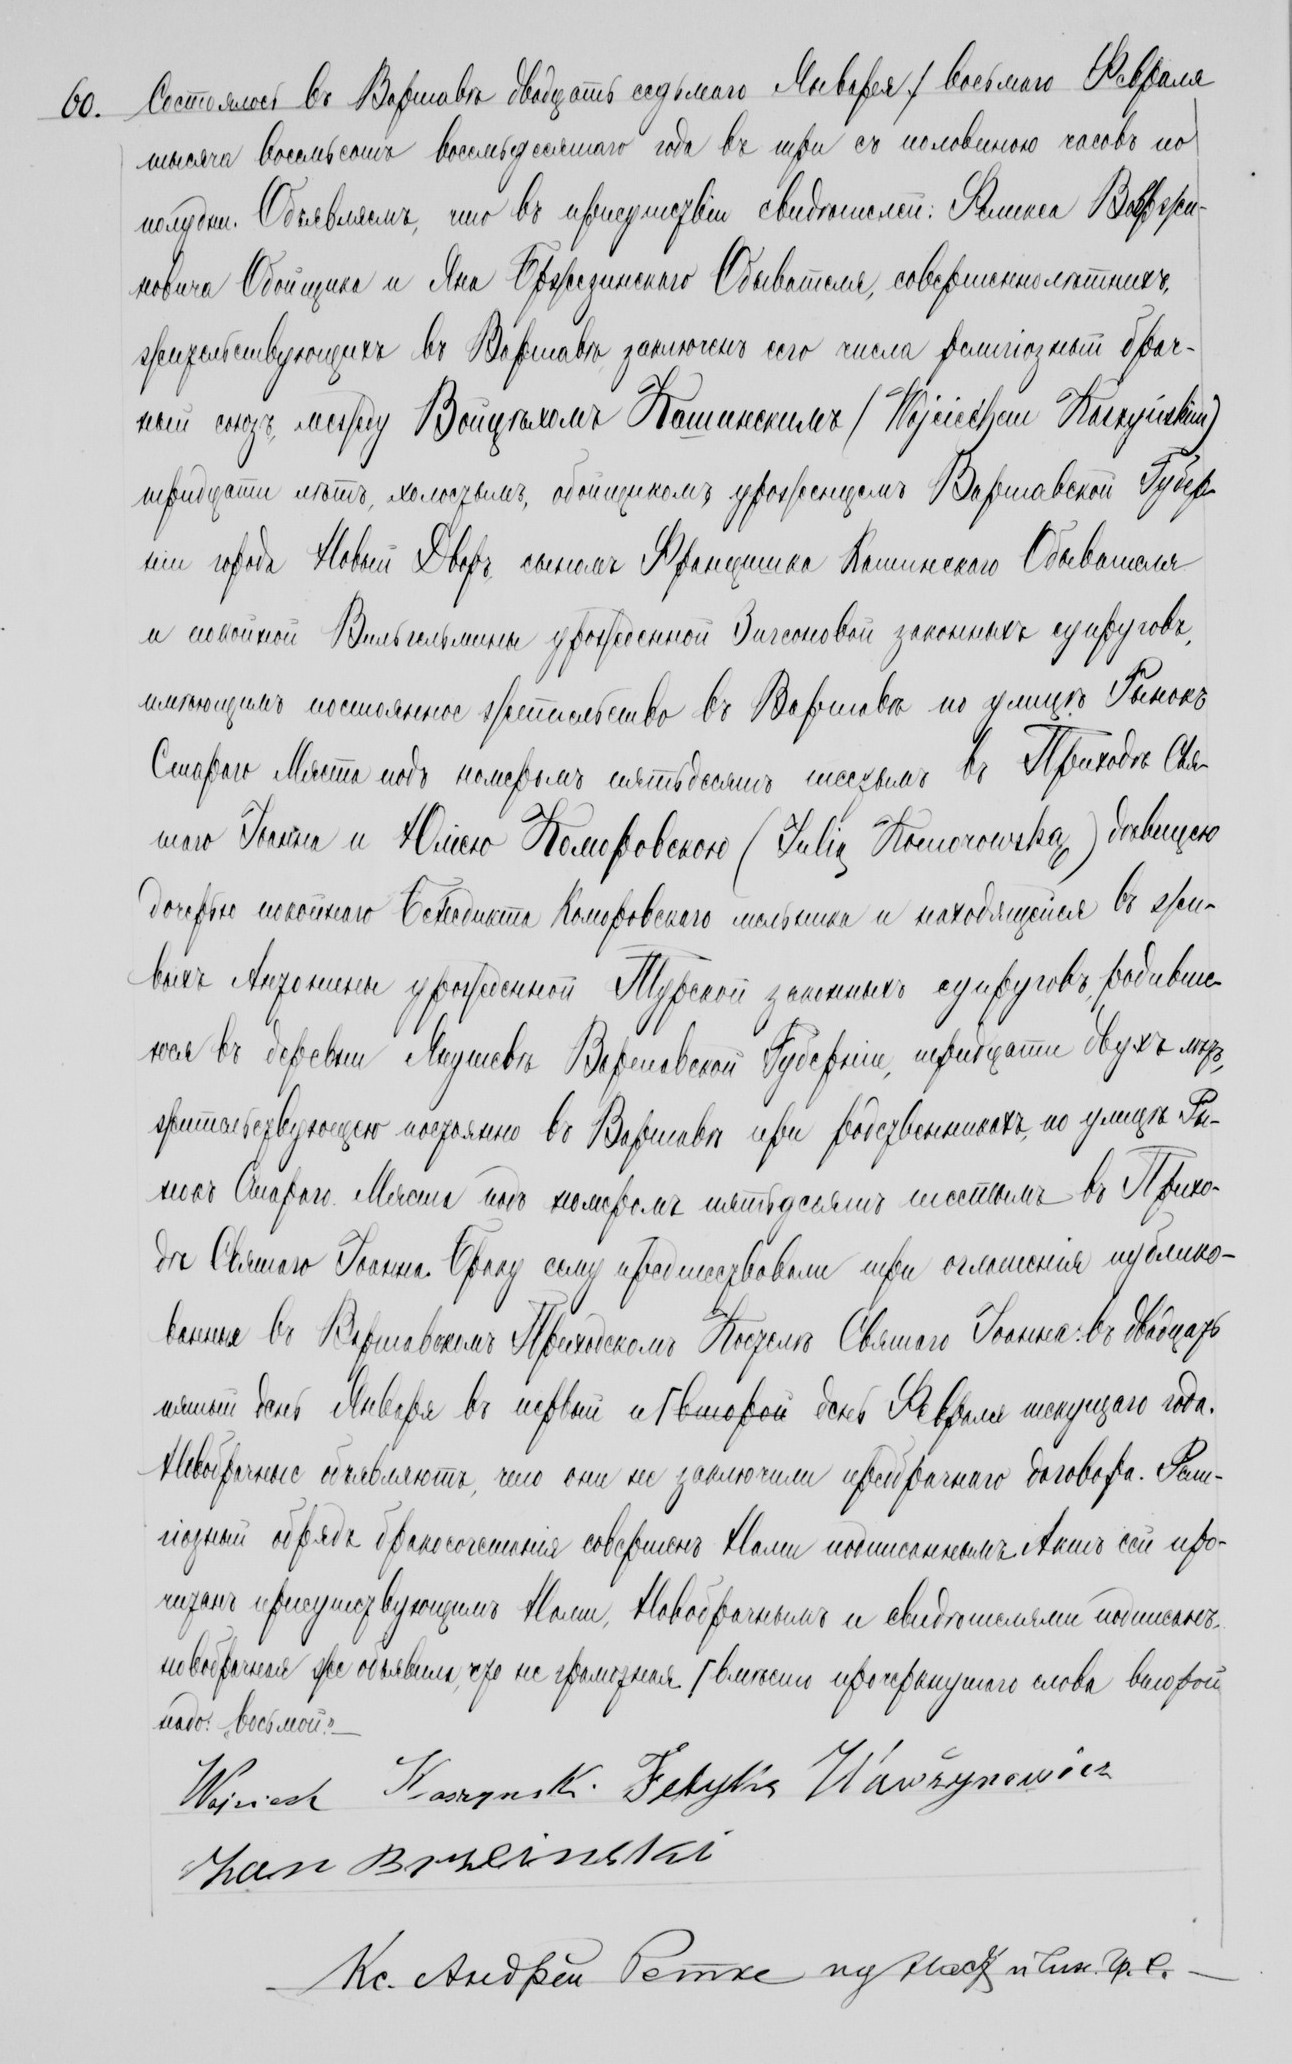 60. Состоялось въ Варшавѣ двадцать седьмаго Января / восьмаго Февраля
тысяча восемьсотъ восемьдесятаго года въ три съ половиною часовъ по
полудни. Объявляемъ, что въ присутствіи свидѣтелей: Феликса Вавржи-
новича Обойщика и Яна Бржезинскаго Обывателя, совершеннолѣтнихъ,
жительствующихъ въ Варшавѣ, заключенъ сего числа религіозный брач-
ный союзъ, между Войцѣхомъ Кашинскимъ (Wojciechem Kaszyńskim)
тридцати лѣтъ, холостымъ, обойщикомъ, урожденцемъ Варшавской Губер-
ніи города Новый Дворъ, сыномъ Францишка Кашинскаго Обывателя
и покойной Вильгельмины урожденной Зигсоновой законныхъ супруговъ,
имѣющимъ постоянное жительство въ Варшавѣ по улицѣ Рынокъ
Стараго Мяста подъ номеромъ пятьдесятъ шестымъ въ Приходѣ Свя-
таго Іоанна и Юліею Коморовскою (Julią Komorowską) дѣвицею
дочерью покойнаго Бенедикта Коморовскаго мельника и находящейся въ жи-
выхъ Антонины урожденной Турской законныхъ супруговъ, родивше-
юся въ деревни Варшавской Губерніи, тридцати двухъ лѣтъ,
жительствующею постоянно въ Варшавѣ при родственникахъ, по улицѣ Ры-
нокъ Стараго Мяста подъ номеромъ пятьдесятъ шестымъ въ Прихо-
дѣ Святаго Іоанна. Браку сему предшествовали три оглашенія публико-
ванныя въ Варшавскомъ Приходскомъ Костелѣ Святаго Іоанна: въ двадцать
пятый день Января въ первый и второй день Февраля текущаго года.
Новобрачные объявляютъ, что они не заключили предбрачнаго договора. Рели-
гіозный обрядъ бракосочетанія совершенъ Нами подписаннымъ. Актъ сей про-
читанъ присутствующимъ Нами, Новобрачнымъ и свидѣтелями подписанъ,
новобрачная же объявила, что не грамотная. вмѣсто прочеркнутаго слова второй
надо: „восьмой."
Wojciech Kaszynsk. Felyks Wawżynowicz
Jan Brzezinski
Кс. Андрей Ретке